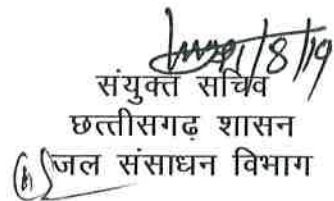 1/8/19
संयुक्त सचिव
छत्तीसगढ़ शासन
जल संसाधन विभाग